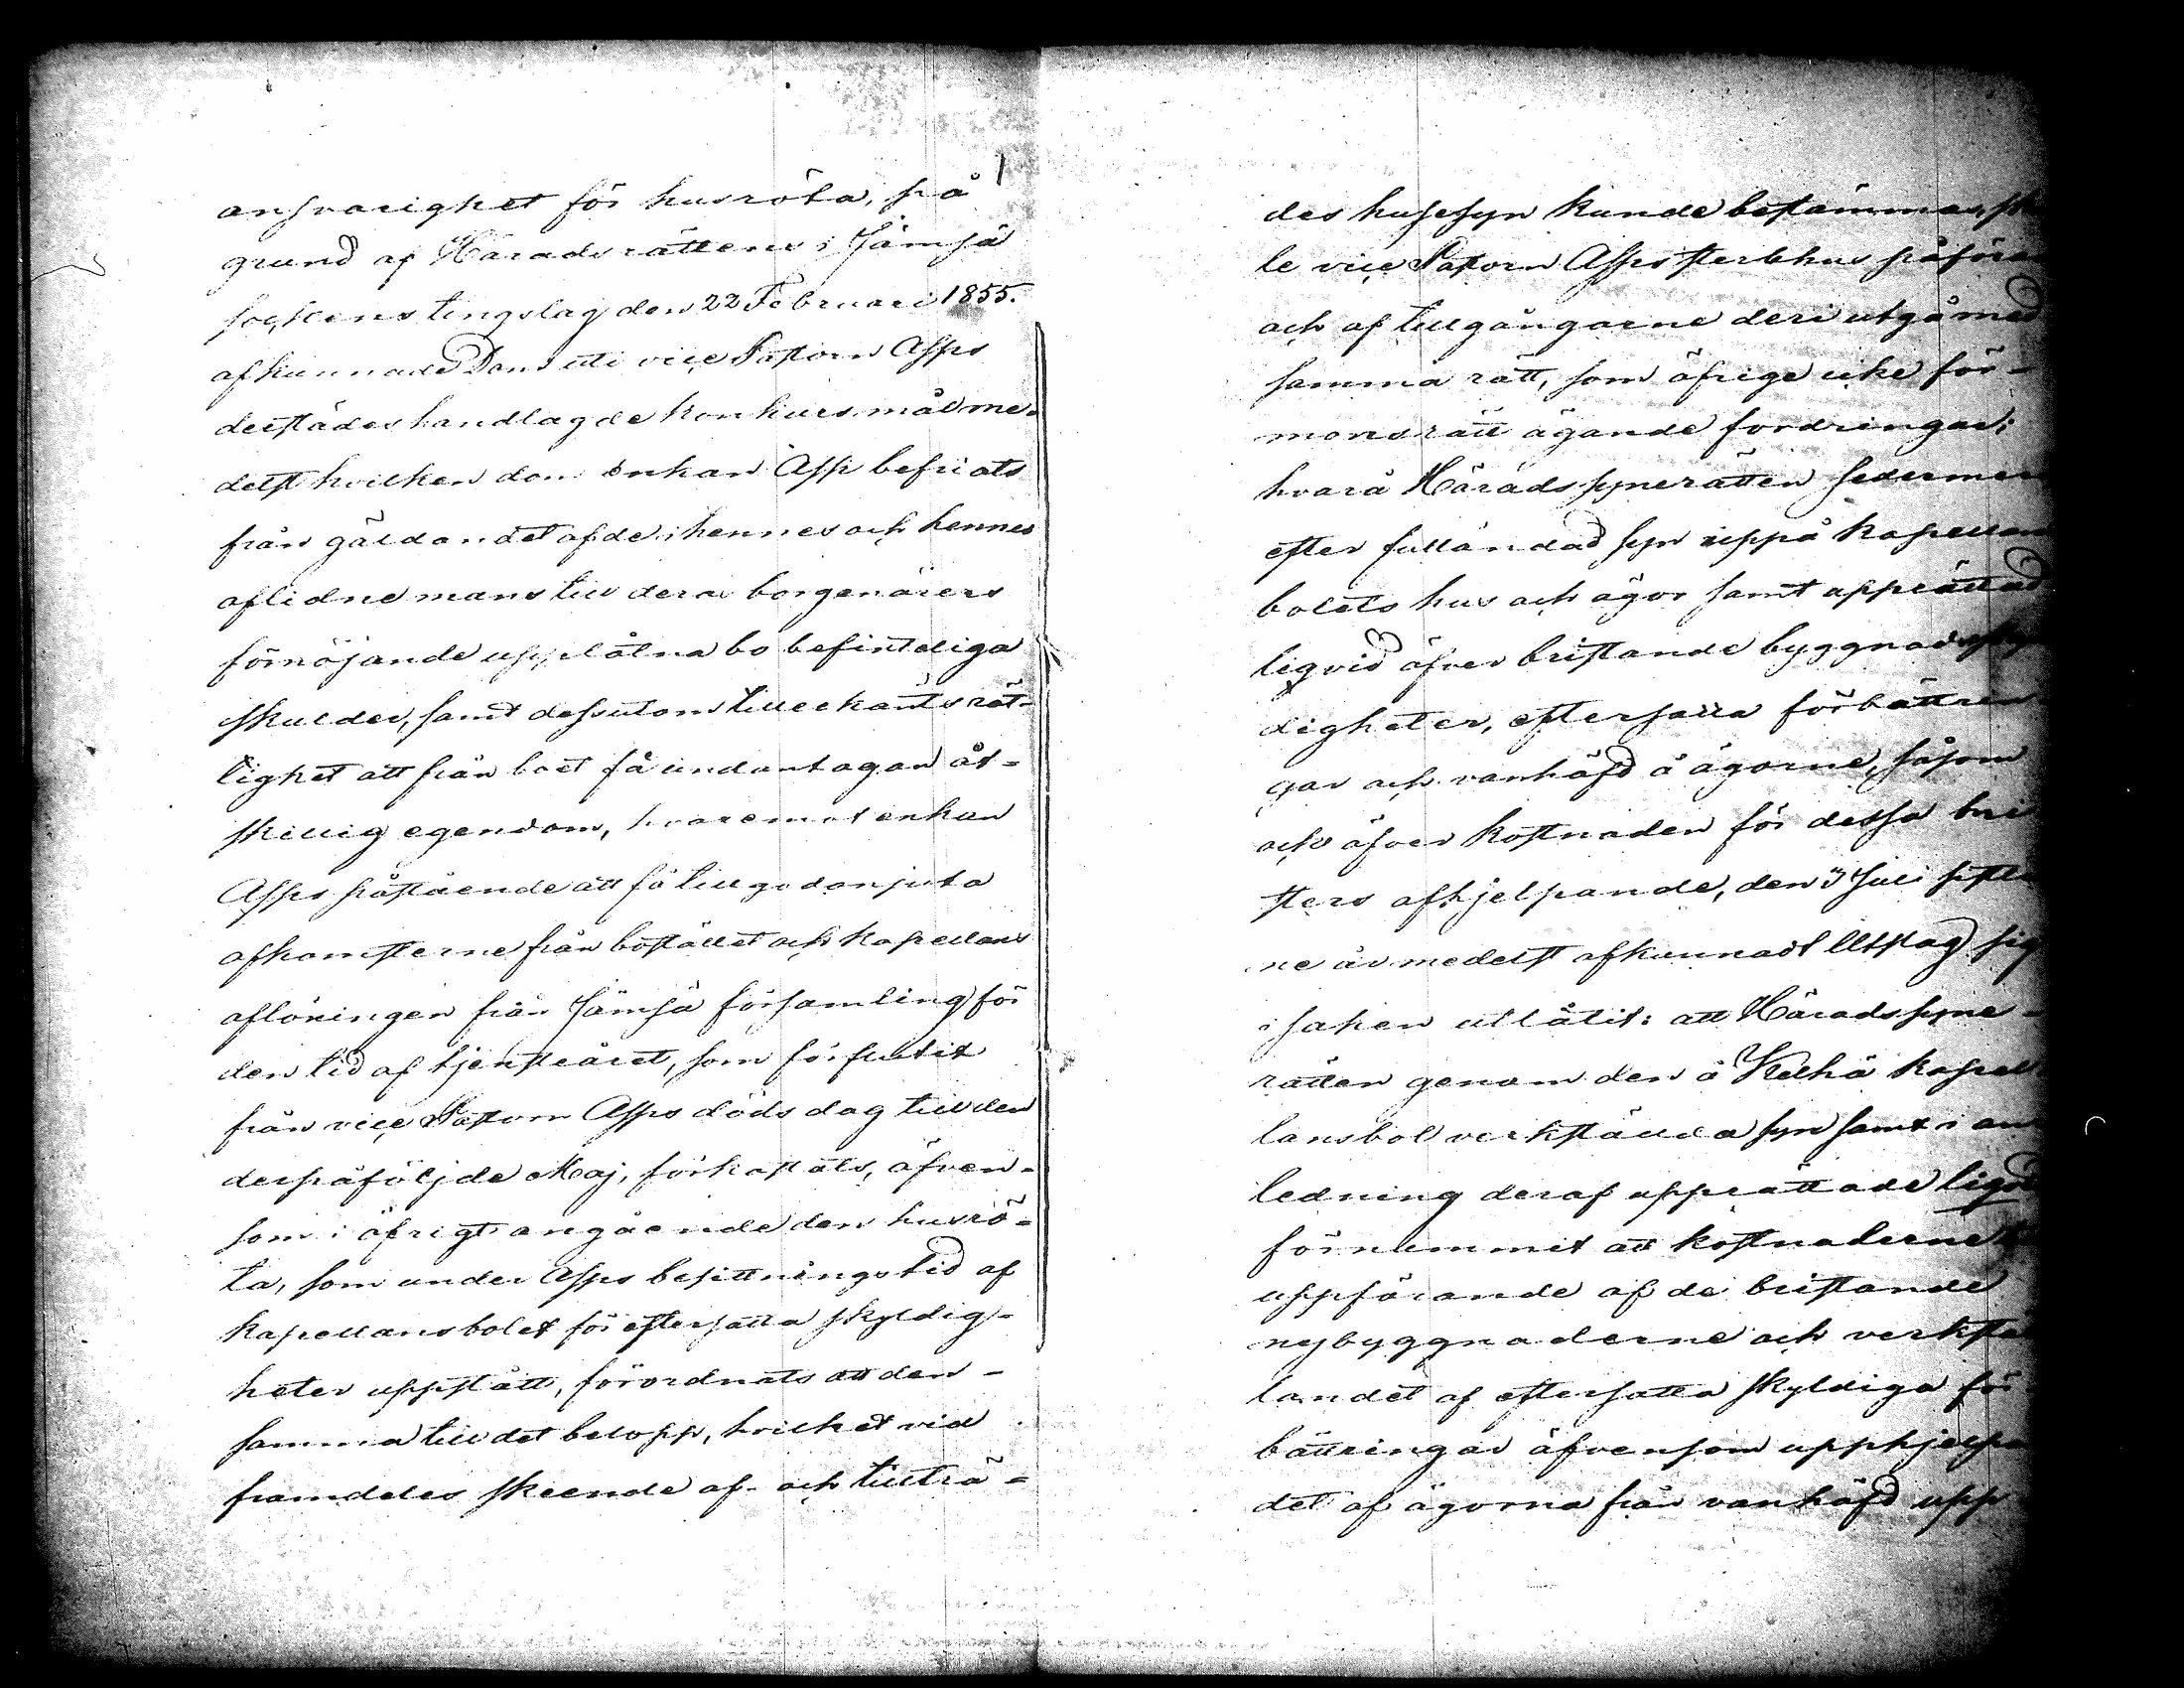 ansvarighet för husröta, på
grund af Häradsrättens i Jämsä
sockens tingslag den 22 Februari 1855.
afkunnade Dom uti vice Pastorn Asps
derstädes handlagde konkurs mål me¬
delst hvilken dom enkan Asp befriats
från gäldandet af de i hennes och hennes
aflidne mans till deras borgenärers
förnöjande upplåtna bo befintliga
skulder, samt dessutom tillerkänts rät¬
tighet att från boet få undantagan åt¬
skillig egendom, hvaremot enkan
Asps påstående att få tillgodonjuta
afkomsterne från bostället och kapellans
aflöningen från Jämsä församling för
den tid af tjensteåret, som förflutit
från vice Pastorn Asps dödsdag till den
derpåföljde Maj, förkastats, äfven¬
som i öfrigt angående den husrö¬
ta, som under Asps besittningstid af
kapellansbolet för eftersatta skyldig¬
heter uppstått, förordnats att den¬
samma till det belopp, hvilket vid
framdeles skeende af- och tillträ¬
des husesyn kunde bestämmas, sk
le vice Pastorn Asps sterbhus påföra
och af tillgångarne deri utgå med
samma rätt, som öfrige icke för¬
monsrätt ägande fordringar;
hvarå Häradssynerätten sedermer
efter fulländad syn uppå kapellans
bolets hus och ägor samt upprättad
liqvid öfver bristande byggnadsskyl
digheter, eftersatta förbättrin
gar och vanhäfd å ägorne, såsom
och öfver kostnaden för dessa bri
sters afhjelpande, den 3 Juli sistl
ne år medelst afkunnadt Utslag sig
i saken utlåtit: att Häradssyne¬
rätten genom den å Kelhä kapel
lansbol verkställda syn samt i an
ledning deraf upprättade liqvid
förnummit att kostnaderne
uppförande af de bristande
nybyggnaderne och verkstä
landet af eftersatta skyldiga för
bättringar äfvensom upphjelpa
det af ägorna från vanhäfd upp